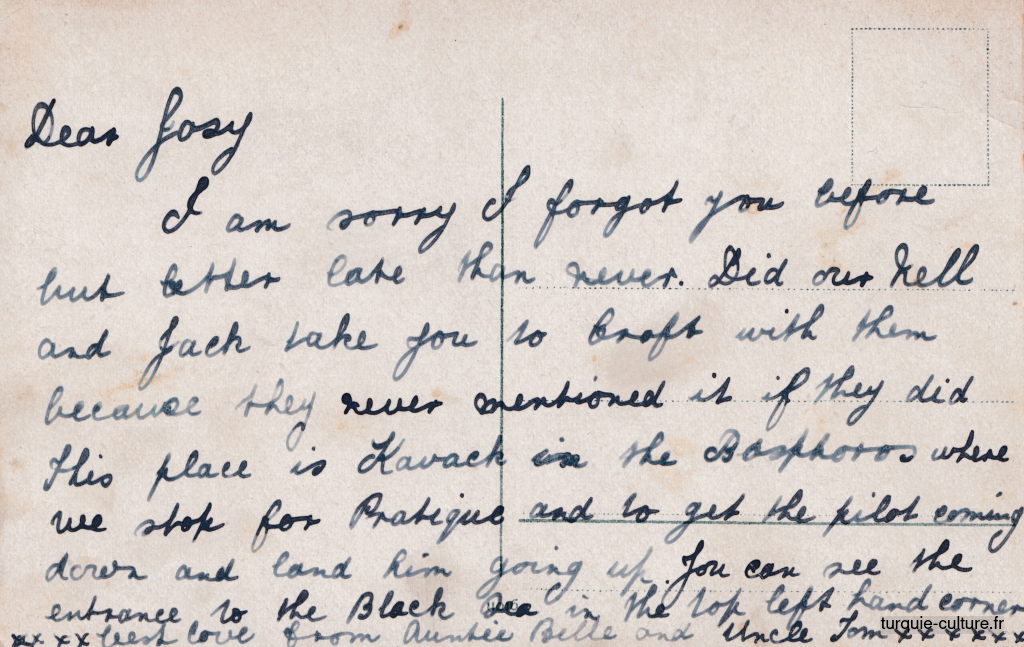 Dear Josy
I am sorry I forgot you before
but better late than never. Did our Nell
and Jack take you to Croft with them
because they never mentioned it if they did
This place is Kavack in the Bosphoros where
we stop for Pratique and to get the pilot coming
down and land him going up. You can see the
entrance to the Black Sea in the top left hand corner
xx xx best love from Auntie Belle and Uncle Tom xxxxxx
turquie-culture.fr